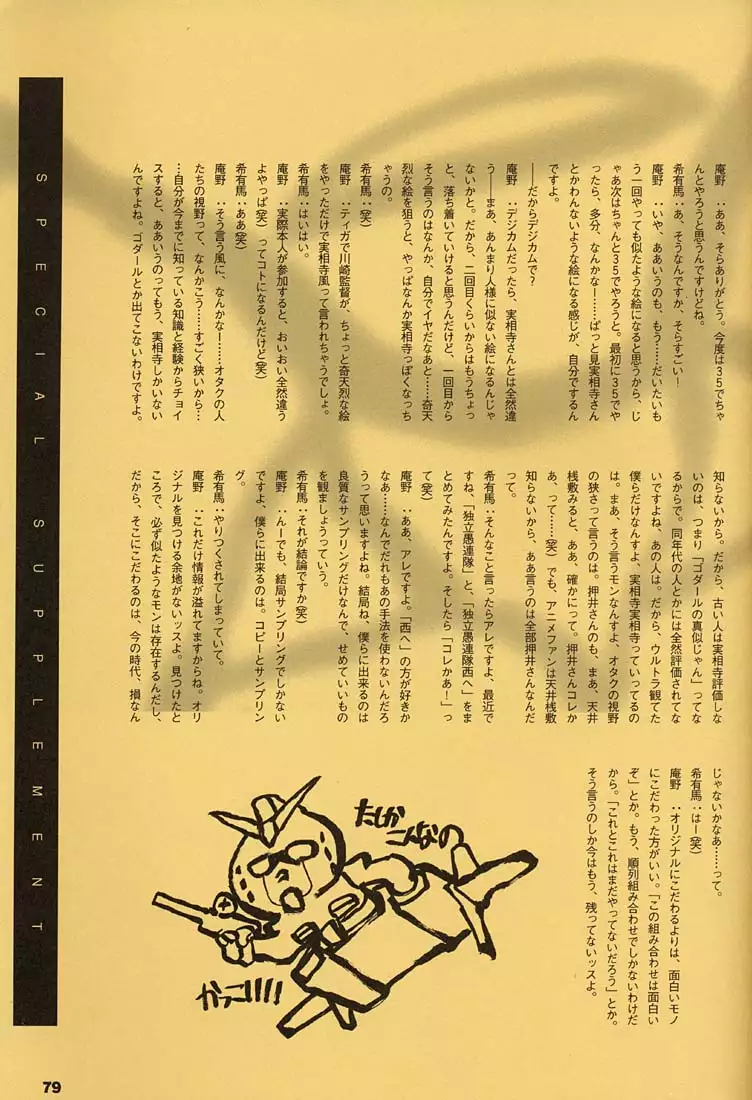 庵野　：ああ、そらありがとう。今度は35でちゃ
んとやろうと思うんですけどね。
希有馬：あ、そうなんですか、そらすごい！
庵野　：いや、ああいうのも、もう……だいたいも
う一回やっても似たような絵になると思うから、じ
ゃあ次はちゃんと35でやろうと。最初に35でや
ったら、多分、なんかな！……ぱっと見実相寺さん
とかわんないような絵になる感じが、自分でするん
ですよ。
――だからデジカムで？
庵野　：デジカムだったら、実相寺さんとは全然違
う――まあ、あんまり人様に似ない絵になるんじゃ
ないかと。だから、二回目くらいからはもうちょっ
と、落ち着いていけると思うんだけど、一回目から
そう言うのはなんか、自分でイヤだなあと……奇天
烈な絵を狙うと、やっぱなんか実相寺っぽくなっち
ゃうの。
希有馬：(笑)
庵野　：ティガで川崎監督が、ちょっと奇天烈な絵
をやっただけで実相寺風って言われちゃうでしょ。
希有馬：はいはい。
庵野　：実際本人が参加すると、おいおい全然違う
よやっぱ(笑)　ってコトになるんだけど(笑)
希有馬：ああ(笑)
庵野　：そう言う風に、なんかなー……オタクの人
たちの視野って、なんかこう……すごく狭いから…
…自分が今までに知っている知識と経験からチョイ
スすると、ああいうのってもう、実相寺しかいない
んですよね。ゴダールとか出てこないわけですよ。
知らないから。だから、古い人は実相寺評価しな
いのは、つまり「ゴダールの真似じゃん」ってな
るからで。同年代の人とかには全然評価されてな
いですよね、あの人は。だから、ウルトラ観てた
僕らだけなんすよ、実相寺実相寺っていってるの
は。まあ、そう言うモンなんすよ、オタクの視野
の狭さって言うのは。押井さんのも、まあ、天井
桟敷みると、ああ、確かにって。押井さんコレか
あ、って……(笑)　でも、アニメファンは天井桟敷
知らないから、ああ言うのは全部押井さんなんだ
って。
希有馬：そんなこと言ったらアレですよ、最近で
すね、「独立愚連隊」と、「独立愚連隊西へ」をま
とめてみたんですよ。そしたら「コレかあー！」っ
て(笑)
庵野　：ああ、アレですよ。「西へ」の方が好きか
なあ……なんでだれもあの手法を使わないんだろ
うって思いますよね。結局ね、僕らに出来るのは
良質なサンプリングだけなんで、せめていいもの
を観ましょうっていう。
希有馬：それが結論ですか(笑)
庵野　：んーでも、結局サンプリングでしかない
ですよ、僕らに出来るのは。コピーとサンプリン
グ。
希有馬：やりつくされてしまっていて。
庵野　：これだけ情報が溢れてますからね。オリ
ジナルを見つける余地がないッスよ。見つけたと
ころで、必ず似たようなモンは存在するんだし、
だから、そこにこだわるのは、今の時代、損なん
じゃないかなあ……って。
希有馬：はー(笑)
庵野　：オリジナルにこだわるよりは、面白いモノ
にこだわった方がいい。「この組み合わせは面白い
ぞ」とか。もう、順列組み合わせでしかないわけだ
から。「これとこれはまだやってないだろう」とか。
そう言うのしか今はもう、残ってないッスよ。
たしか
こんなの
かっこ!!!!
SPECIAL SUPPLEMENT
79